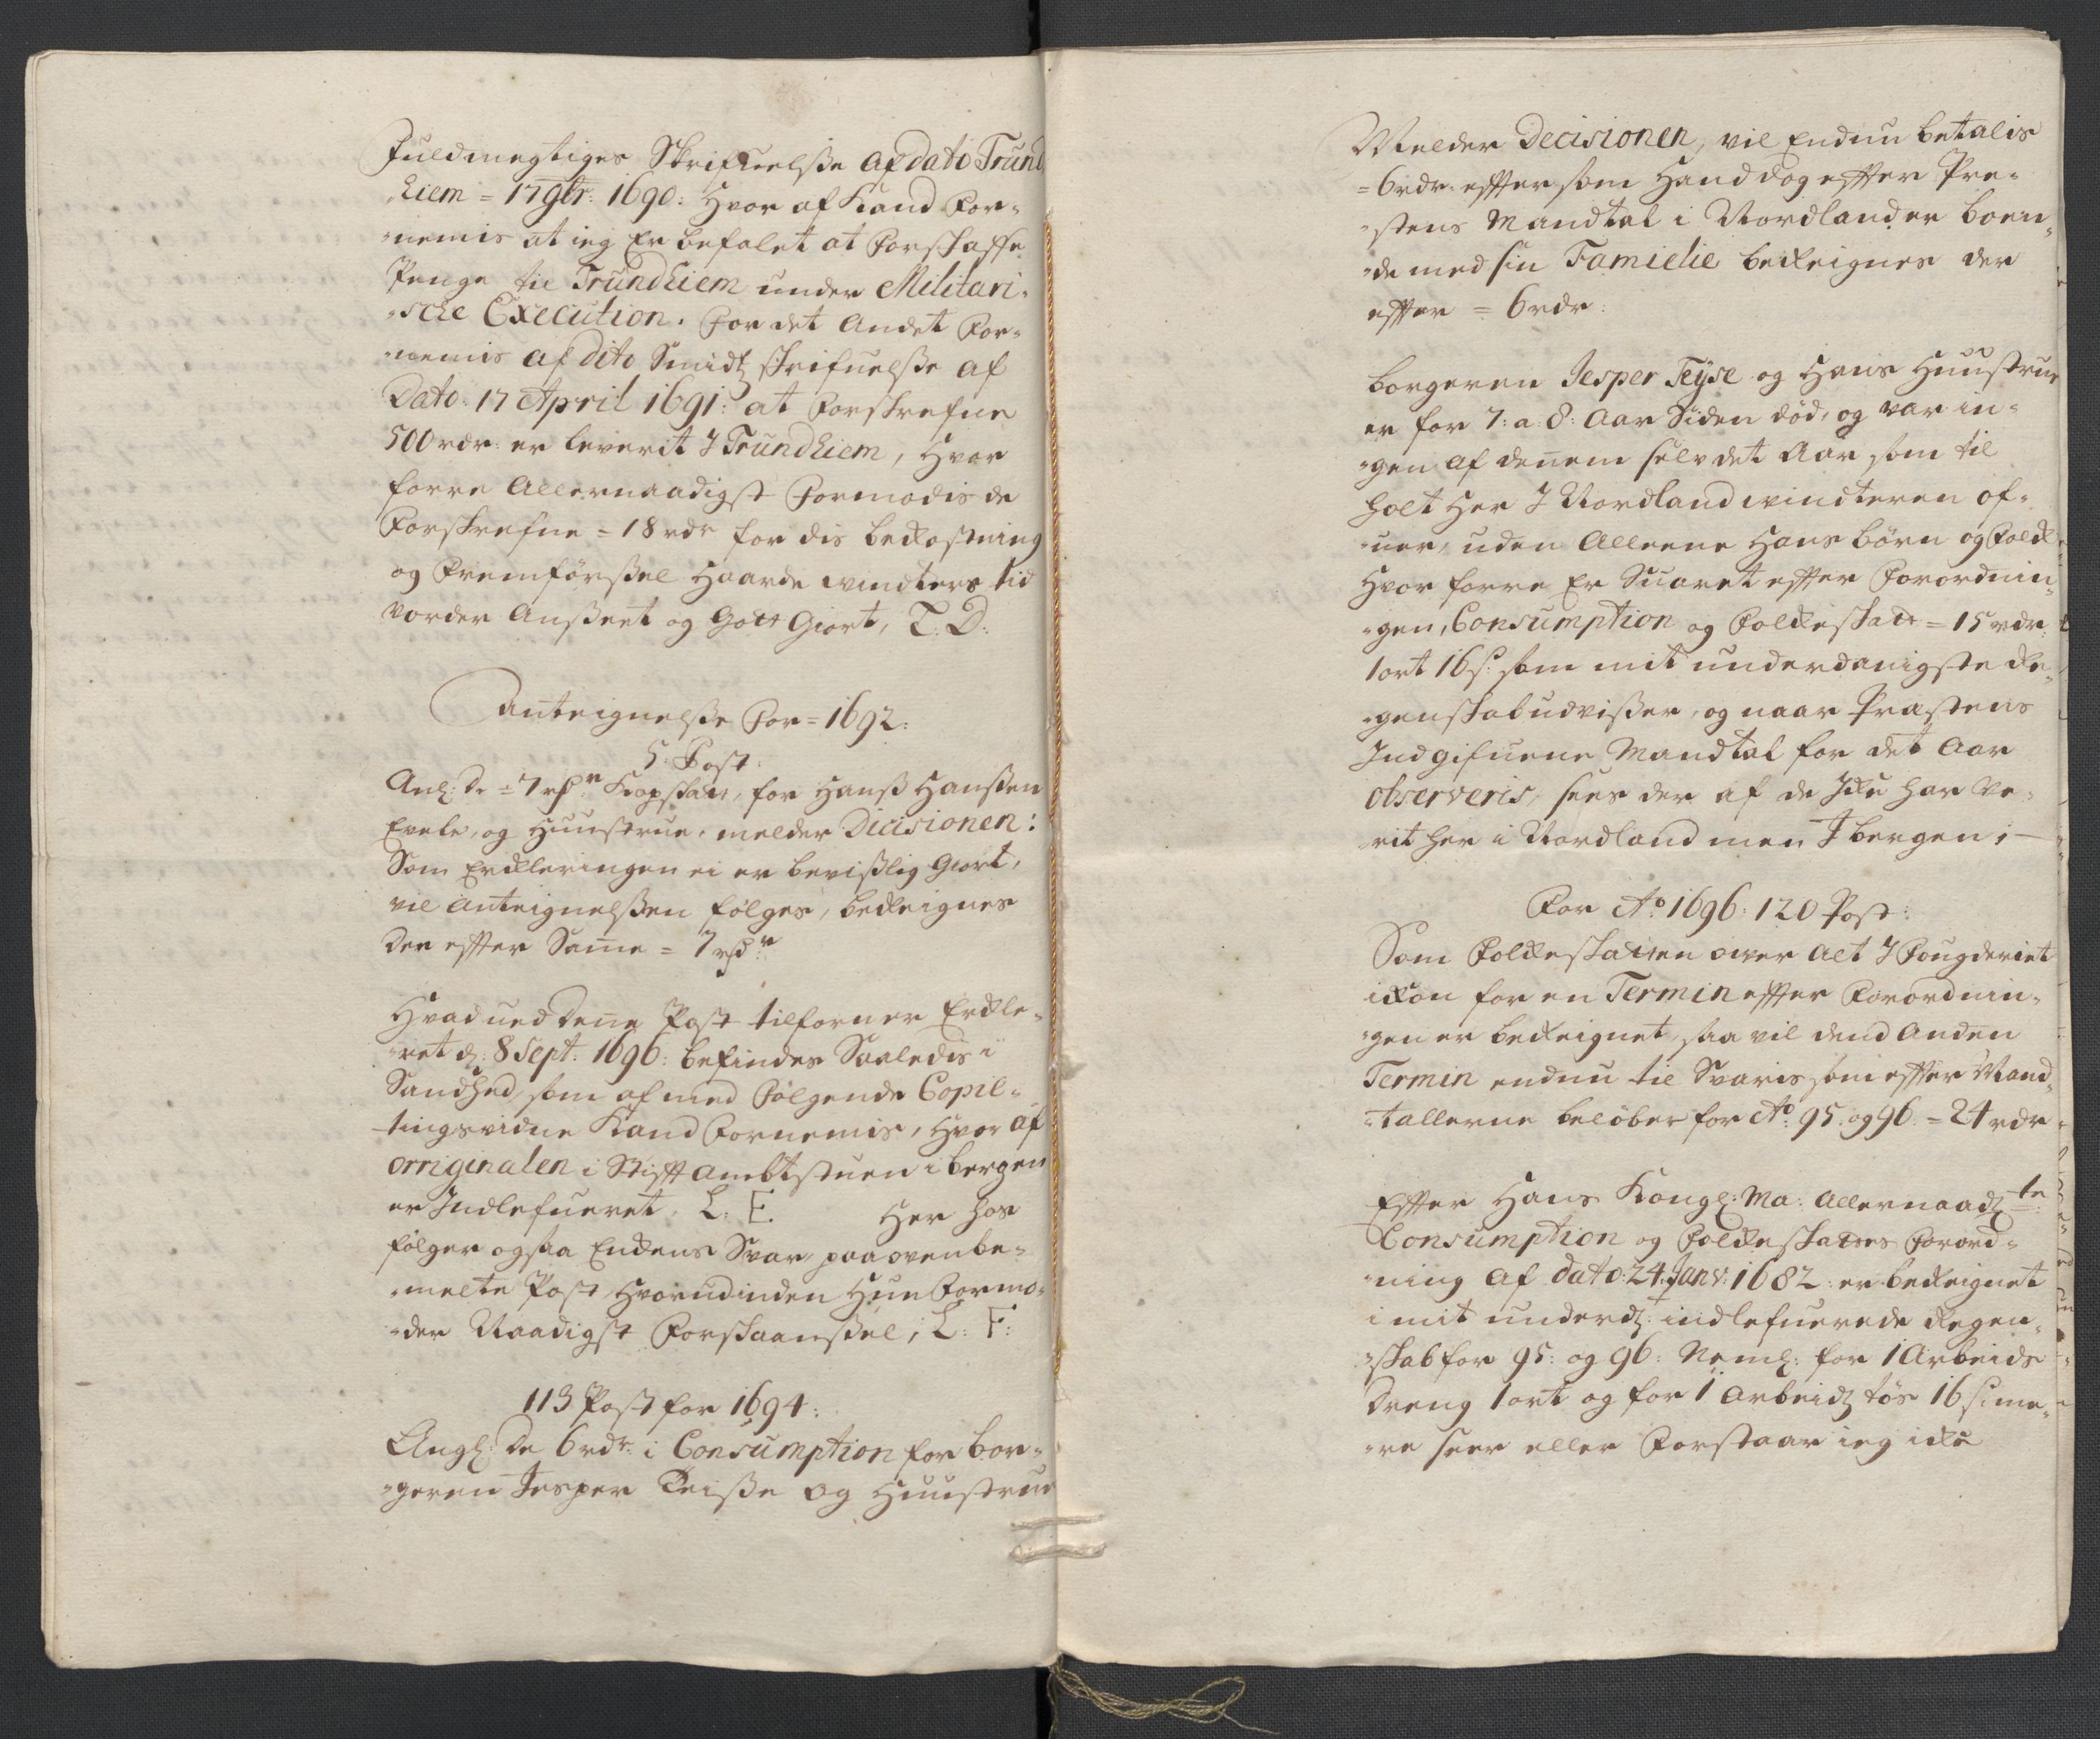 Fuldmegtiges Skrifuelsse af dato Trund
hiem = 17 9br: 1690: Hvor af Kand For-
nemis at ieg Er befalet at Forskaffe
Penge til Trundhiem under Militari-
sche Execution. For det Andet For-
nemis af dito Smidtz skrifuelsse af
Dato. 17 April 1691: at Forskrefne
500 rdr: er leverit J Trundhiem, Hvor
forre Allernaadigst Formodis de
Forskrefne = 18 rdr for dis bekostning
og Fremförssel Haarde windters tid
vorder Ansseet og Gott Giort, L: D:
Anteignelsse For = 1692:
5. Post.
Anl: De = 7 rdr Kopskatt, for Hanss Hanssen
Evele, og Huustrue, melder Dicisionen:
Som Erkleringen ei er bevisslig Giort,
vil Anteignelssen fölges, bereignes
Der effter Same = 7 rdr
Hvad ved Dene Post tilforn er Erkle-
ret d: 8 Sept: 1696: befindes Saaledis i
Sandhed, som af med Følgende Copil-
tingsvidne Kand Fornemis, Hvor af
orriginalen i Stifft Ambtstuen i bergen
er Indlefueret. L: E. Her hos
følger ogsaa Enkens Svar paa ovenbe-
melte Post Hvorudinden Hun Formo-
der Naadigst Forskaanssel; L: F:
113 Post for 1694:
Angl: De 6 rdr: i Consumption for bor-
geren Jesper Teisse og Huustrue
Melder Decisionen, vil Endnu betalis
= 6 rdr: effter som Hand dog effter Pre-
stens Mandtal i Nordlander boen-
de med sin Familie bereignes der
effter = 6 rdr:
borgeren Jesper Teyse og Hans Huustrue
er for 7: a 8: Aar Siden död, og var in-
gen af denem selv det Aar som til
holt Her J Nordland windteren of-
uer, uden Alleene Hans börn og Folk
Hvor forre Er Suaret effter Forordnin-
gen, Consumption og Folkeskatt = 15 rdr:
1 ort 16 s: som mit underdanigste Re-
genskab udvisser, og naar Præstens
Indgifuene Mandtal for det Aar
observeris, sees der af de Icke har Ve-
rit her i Nordland men J bergen;
For Ao 1696: 120 Post:
Som Folkeskatten over alt J Fougderiet
ikon for en Termin effter Forordnin-
gen er bereignet, saa vil dend Anden
Termin endnu til Svaris som effter Mand-
tallerne belöber for Ao: 95. og 96. = 24 rdr
Effter Hans Kongl: Ma: Allernaadtzte
Consumption og Folkeskattes Forord-
ning af dato: 24. Janv: 1682: er bereignet
i mit underd: indlefuerede Regen-
skab for 95: og 96: Neml: for 1 Arbeids
Dreng 1 ort og for 1 Arbeidtz tös 16 s: me-
re seer eller Forstaar ieg icke